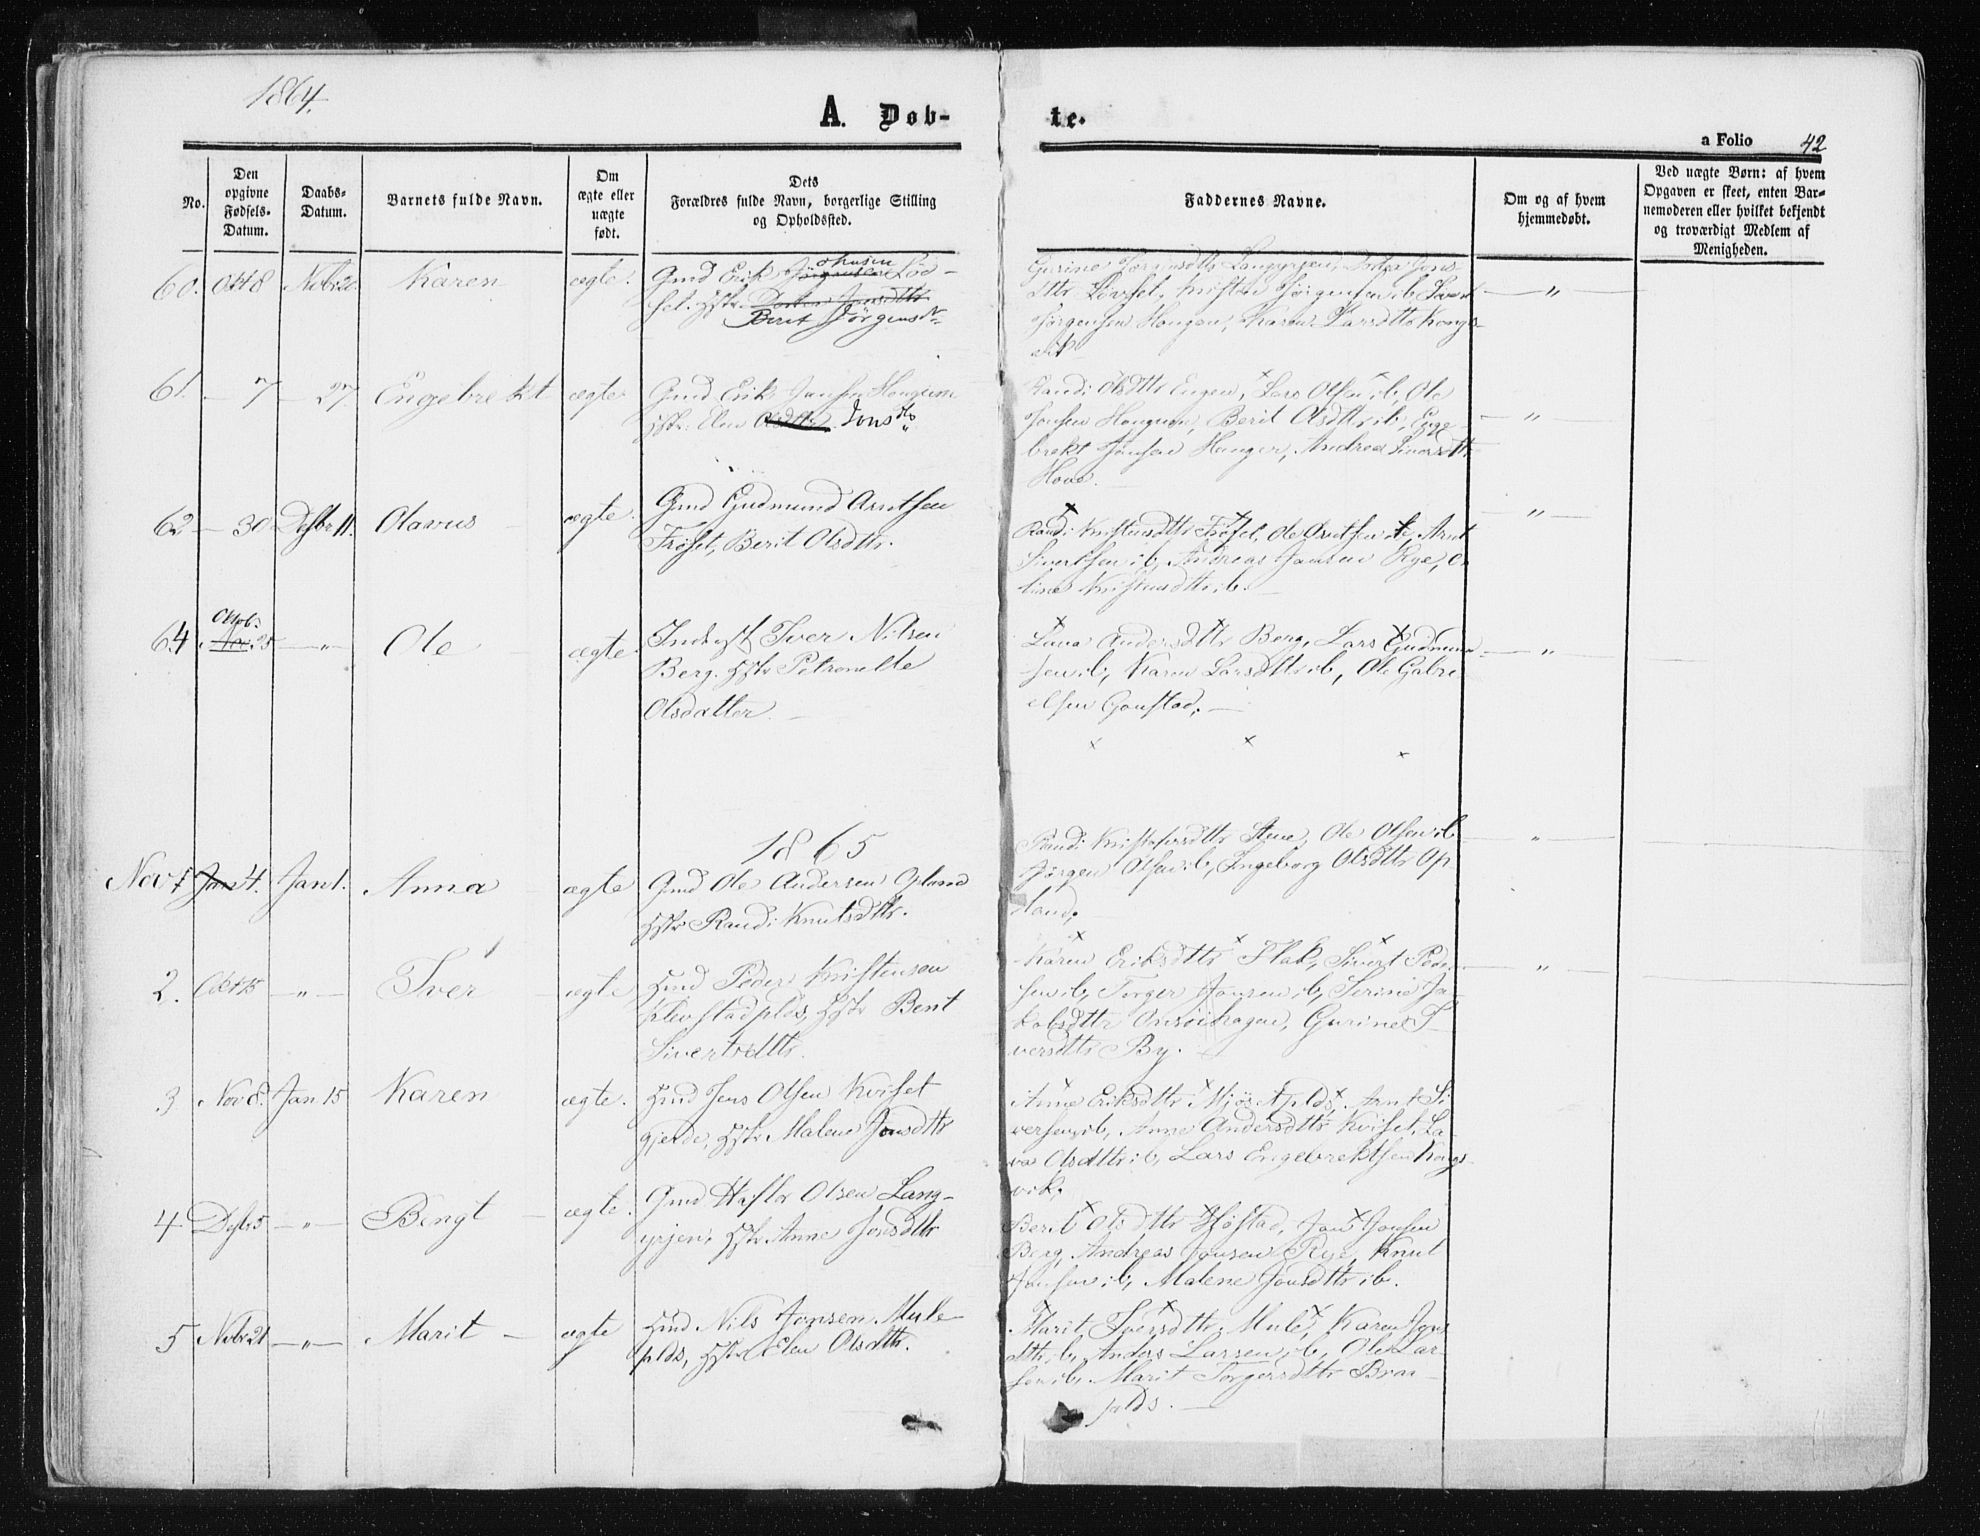 1864.
A. Døb-
te.
a Folio 42
No.
Den
opgivne
Fødsels-
Datum.
Daabs-
Datum.
Barnets fulde Navn.
Om
ægte eller
uægte
født.
Dets
Forældres fulde Navn, borgerlige Stilling
og Opholdssted.
Faddernes Navne.
Om og af hvem
hjemmedøbt.
Ved uægte Børn: af hvem
Opgaven er skeet, enten Bar-
nemoderen eller hvilket bekjendt
og troværdigt Medlem af
Menigheden.
60. Okt 8 Novbr 20. Karen ægte.
Gmd Erik Johnsen
Berit Jørgensdtr
dttr Løvset, Kristen Jørgensen ib,
Jørgensen Haugen, Karen Larsdttr Kongs-
vik
61. — 7 — 27. Engebrekt ægte
Gmd Erik Jonsen
Hstr. Elen Olsdttr. Jonsdtr
Randi Olsdttr Engen, Lars Olsen ib, Ole
Jonsen, Berit Olsdttr ib, Enge-
brekt Jonsen, Andrea Siversdttr
Hove.
62 — 30 Desbr 11. Olavus — ægte.
Gmd Gudmund Arntsen
Frøset, Berit Olsdttr.
Randi Kristensdttr Frøset, Ole Arntsen, Arnt
Sivertsen ib, Andreas Jansen Rye, O-
line Kristensdttr ib.
64 Oktob: Nov. 25 — „ — Ole ægte
Iver Nilsen
Berg. Hstr Petronelle
Olsdatter. —
Andersdttr Berg, Lars Gudmun
sen ib, Karen Larsdttr ib, Ole Gabri-
elsen Gaustad. —
1865
Nov. 4 Jan 4. Jan 1. Anna ægte
Gmd Ole Andersen Opland
Hstr Randi Knutsdttr.
Randi Kristofersdttr Stene, Ole Olsen ib
Jørgen Olsen ib, Ingeborg Olsdttr Op-
land,
2. Okt 15 — „ — Iver — ægte
Hmd Peder Kristensen
Klevstadplds, Hstr Berit
Sivertsdttr.
Karen Eriksdttr Flak, Sivert Peder-
sen ib, Torger Jonsen ib, Serine Ja-
kobsdttr Onsöihagen, Gurine I-
versdttr By.
3 Nov 8. Jan 15 Karen ægte.
Hmd Jens Olsen Kviset
gjerde, Hstr Malene Jonsdttr
Anne Eriksdttr, Arnt Si-
versen ib, Anne Andersdttr Kviset, La-
va Olsdttr ib, Lars Engebrektsen Kongs-
vik,
4 Desbr 5 — „ — Bengt — ægte.
Gmd Olsen Lang-
yrjen, Hstr Anne Jonsdttr
Berit Olsdttr Høstad, Jon Jonsen
Berg, Andreas Jonsen Rye, Knut
Jonsen ib, Malene Jonsdttr ib.
5 Novbr 21 — „ — Marit — ægte
Hmd Nils Jonsen Mule-
plds, Hstr Elen Olsdttr.
Marit Iversdttr Mule, Karen Jons
dttr ib, Anders Larsen ib, Ole Lar-
sen ib, Marit Torgersdttr Braa-
plds. —